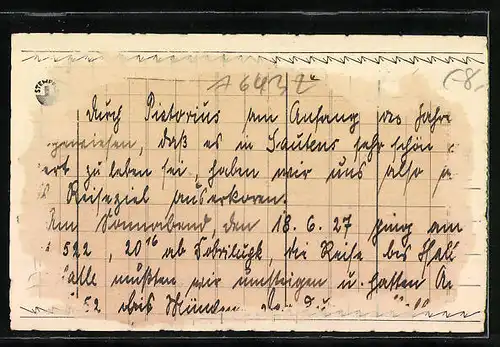 A 6432
(8,-
STEMPEL
durch Pistorius am Anfang des Jahre
gewiesen, daß es in Sautens sehr schön
ert zu leben sei, haben wir uns also
Reiseziel auserkoren.
Am Sonnabend, den 18.6.27 ging am
522, 20 16 ab Dobrilugk, die Reise bis Hall
alle mußten wir umsteigen u. hatten
52 bis München